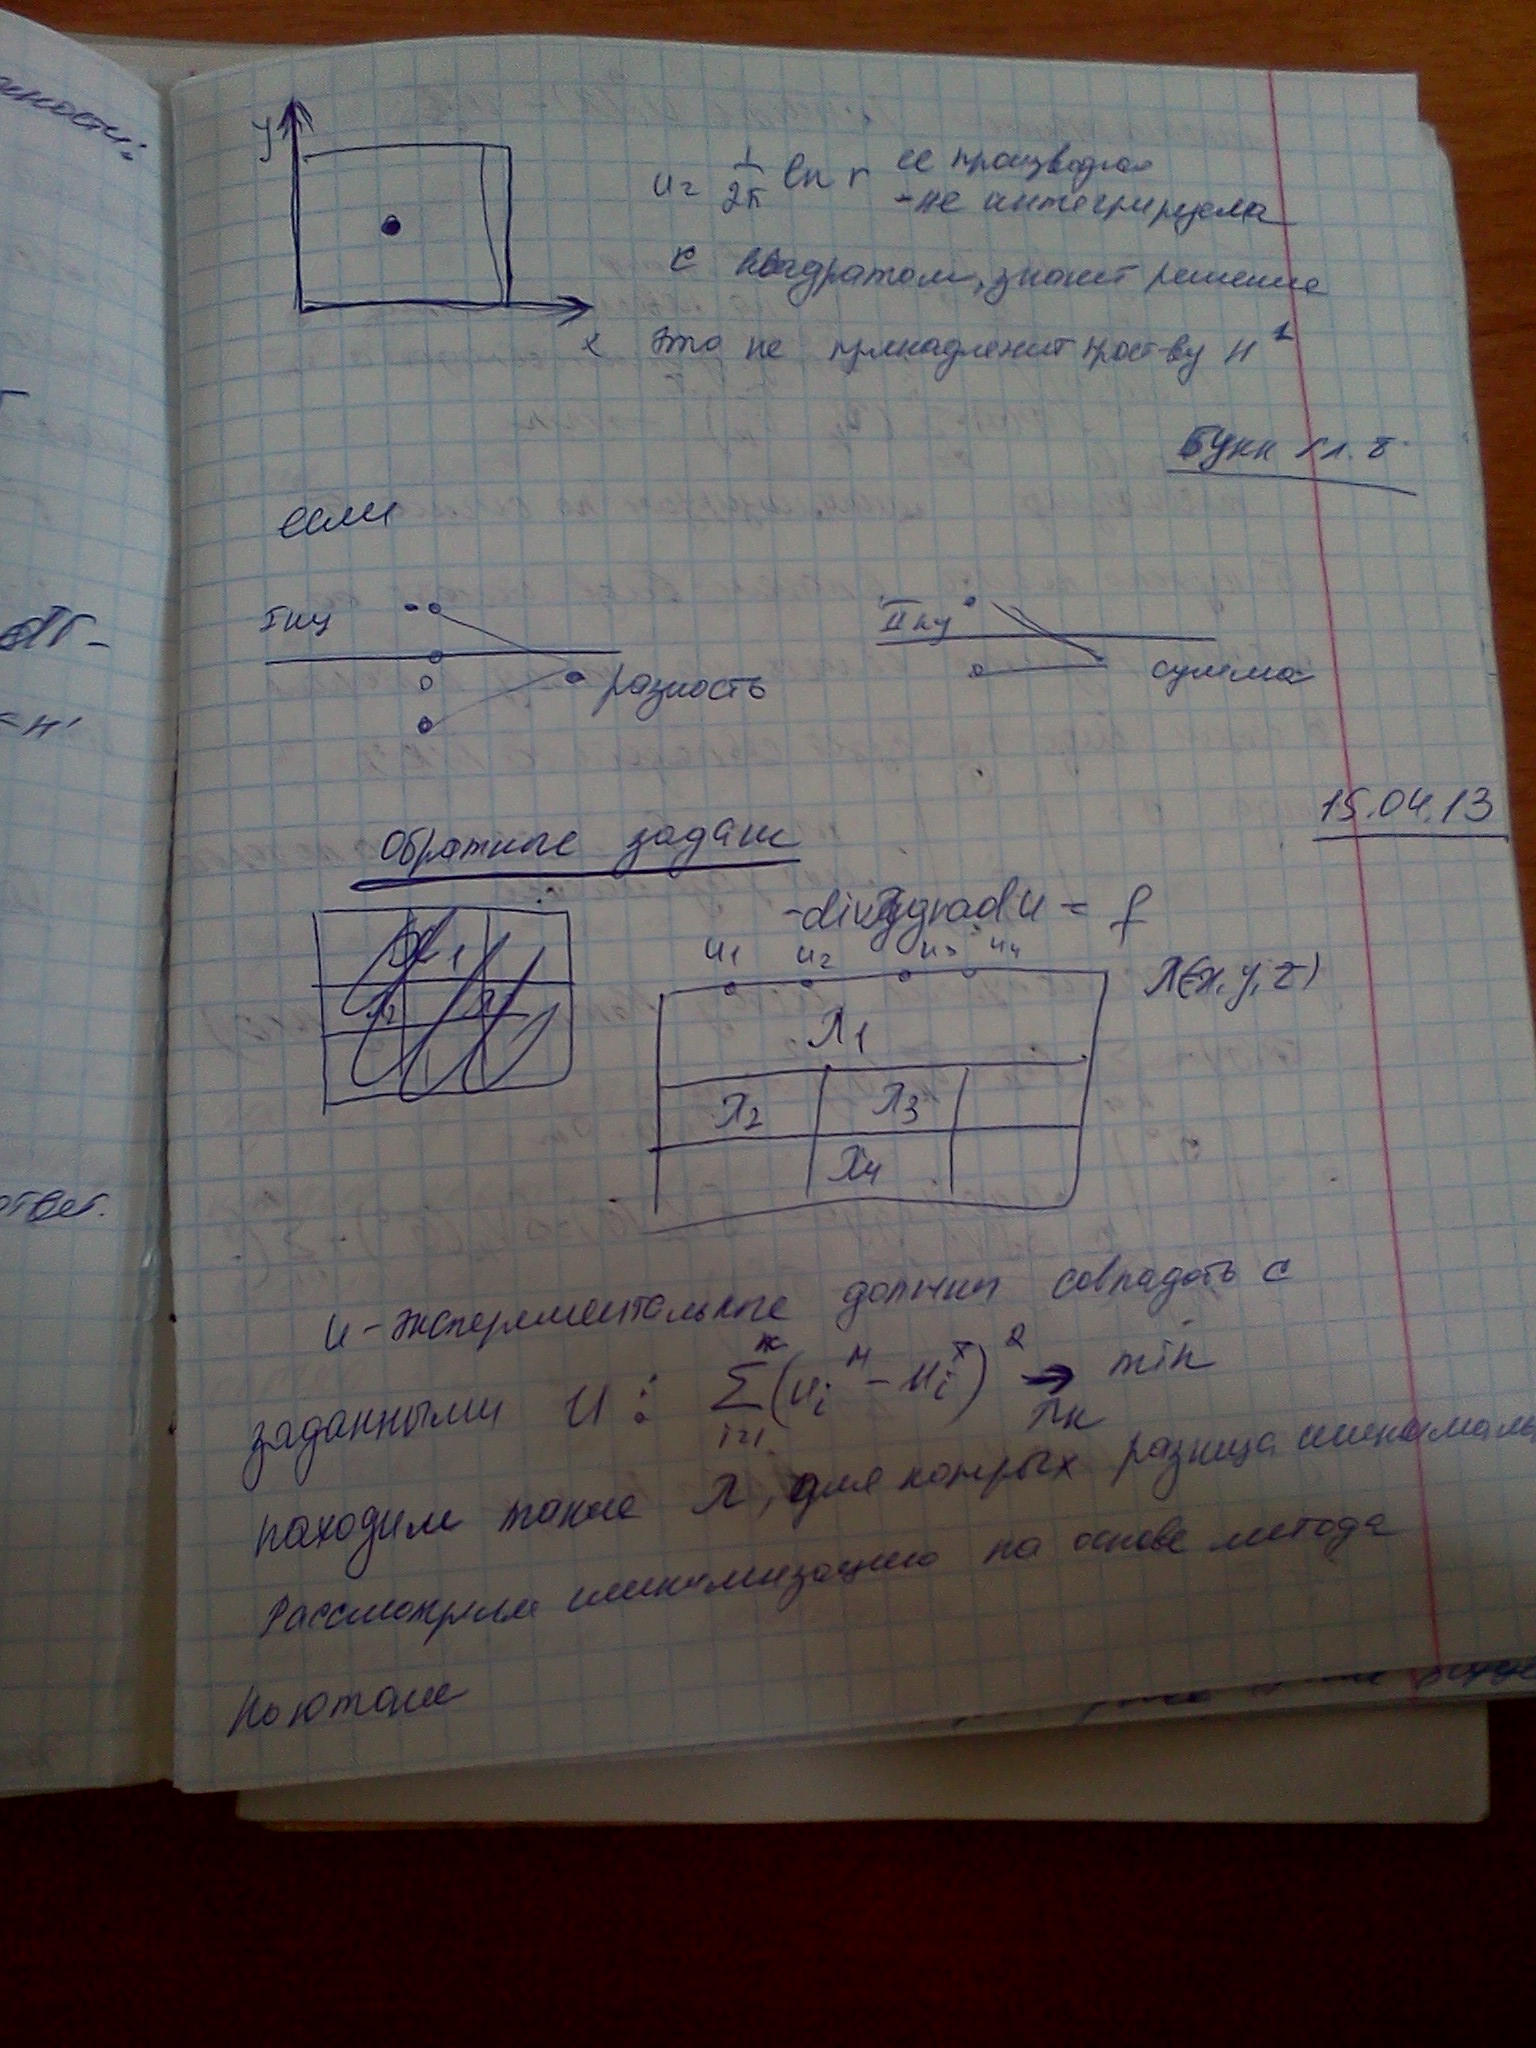 y
u = 1/2π ln r её производная
- не интегрируема
с квадратом, значит решение
x это не принадлежит простр-ву H¹
гл. 8
если
I ку
разность
II ку
сумма
15.04.13
Обратные задачи
-div λ grad u = f
u1 u2 u3 u4
λ(x, y, z)
λ1
λ1
λ2
λ2 λ3
λ4
u - экспериментальные должны совпадать с
заданными u : Σ i=1 (u_i^м - u_i^т)² → min
λk
находим такие λ, для которых разница минималь
Рассмотрим минимизацию на основе метода
Ньютона
ности:
ответ.